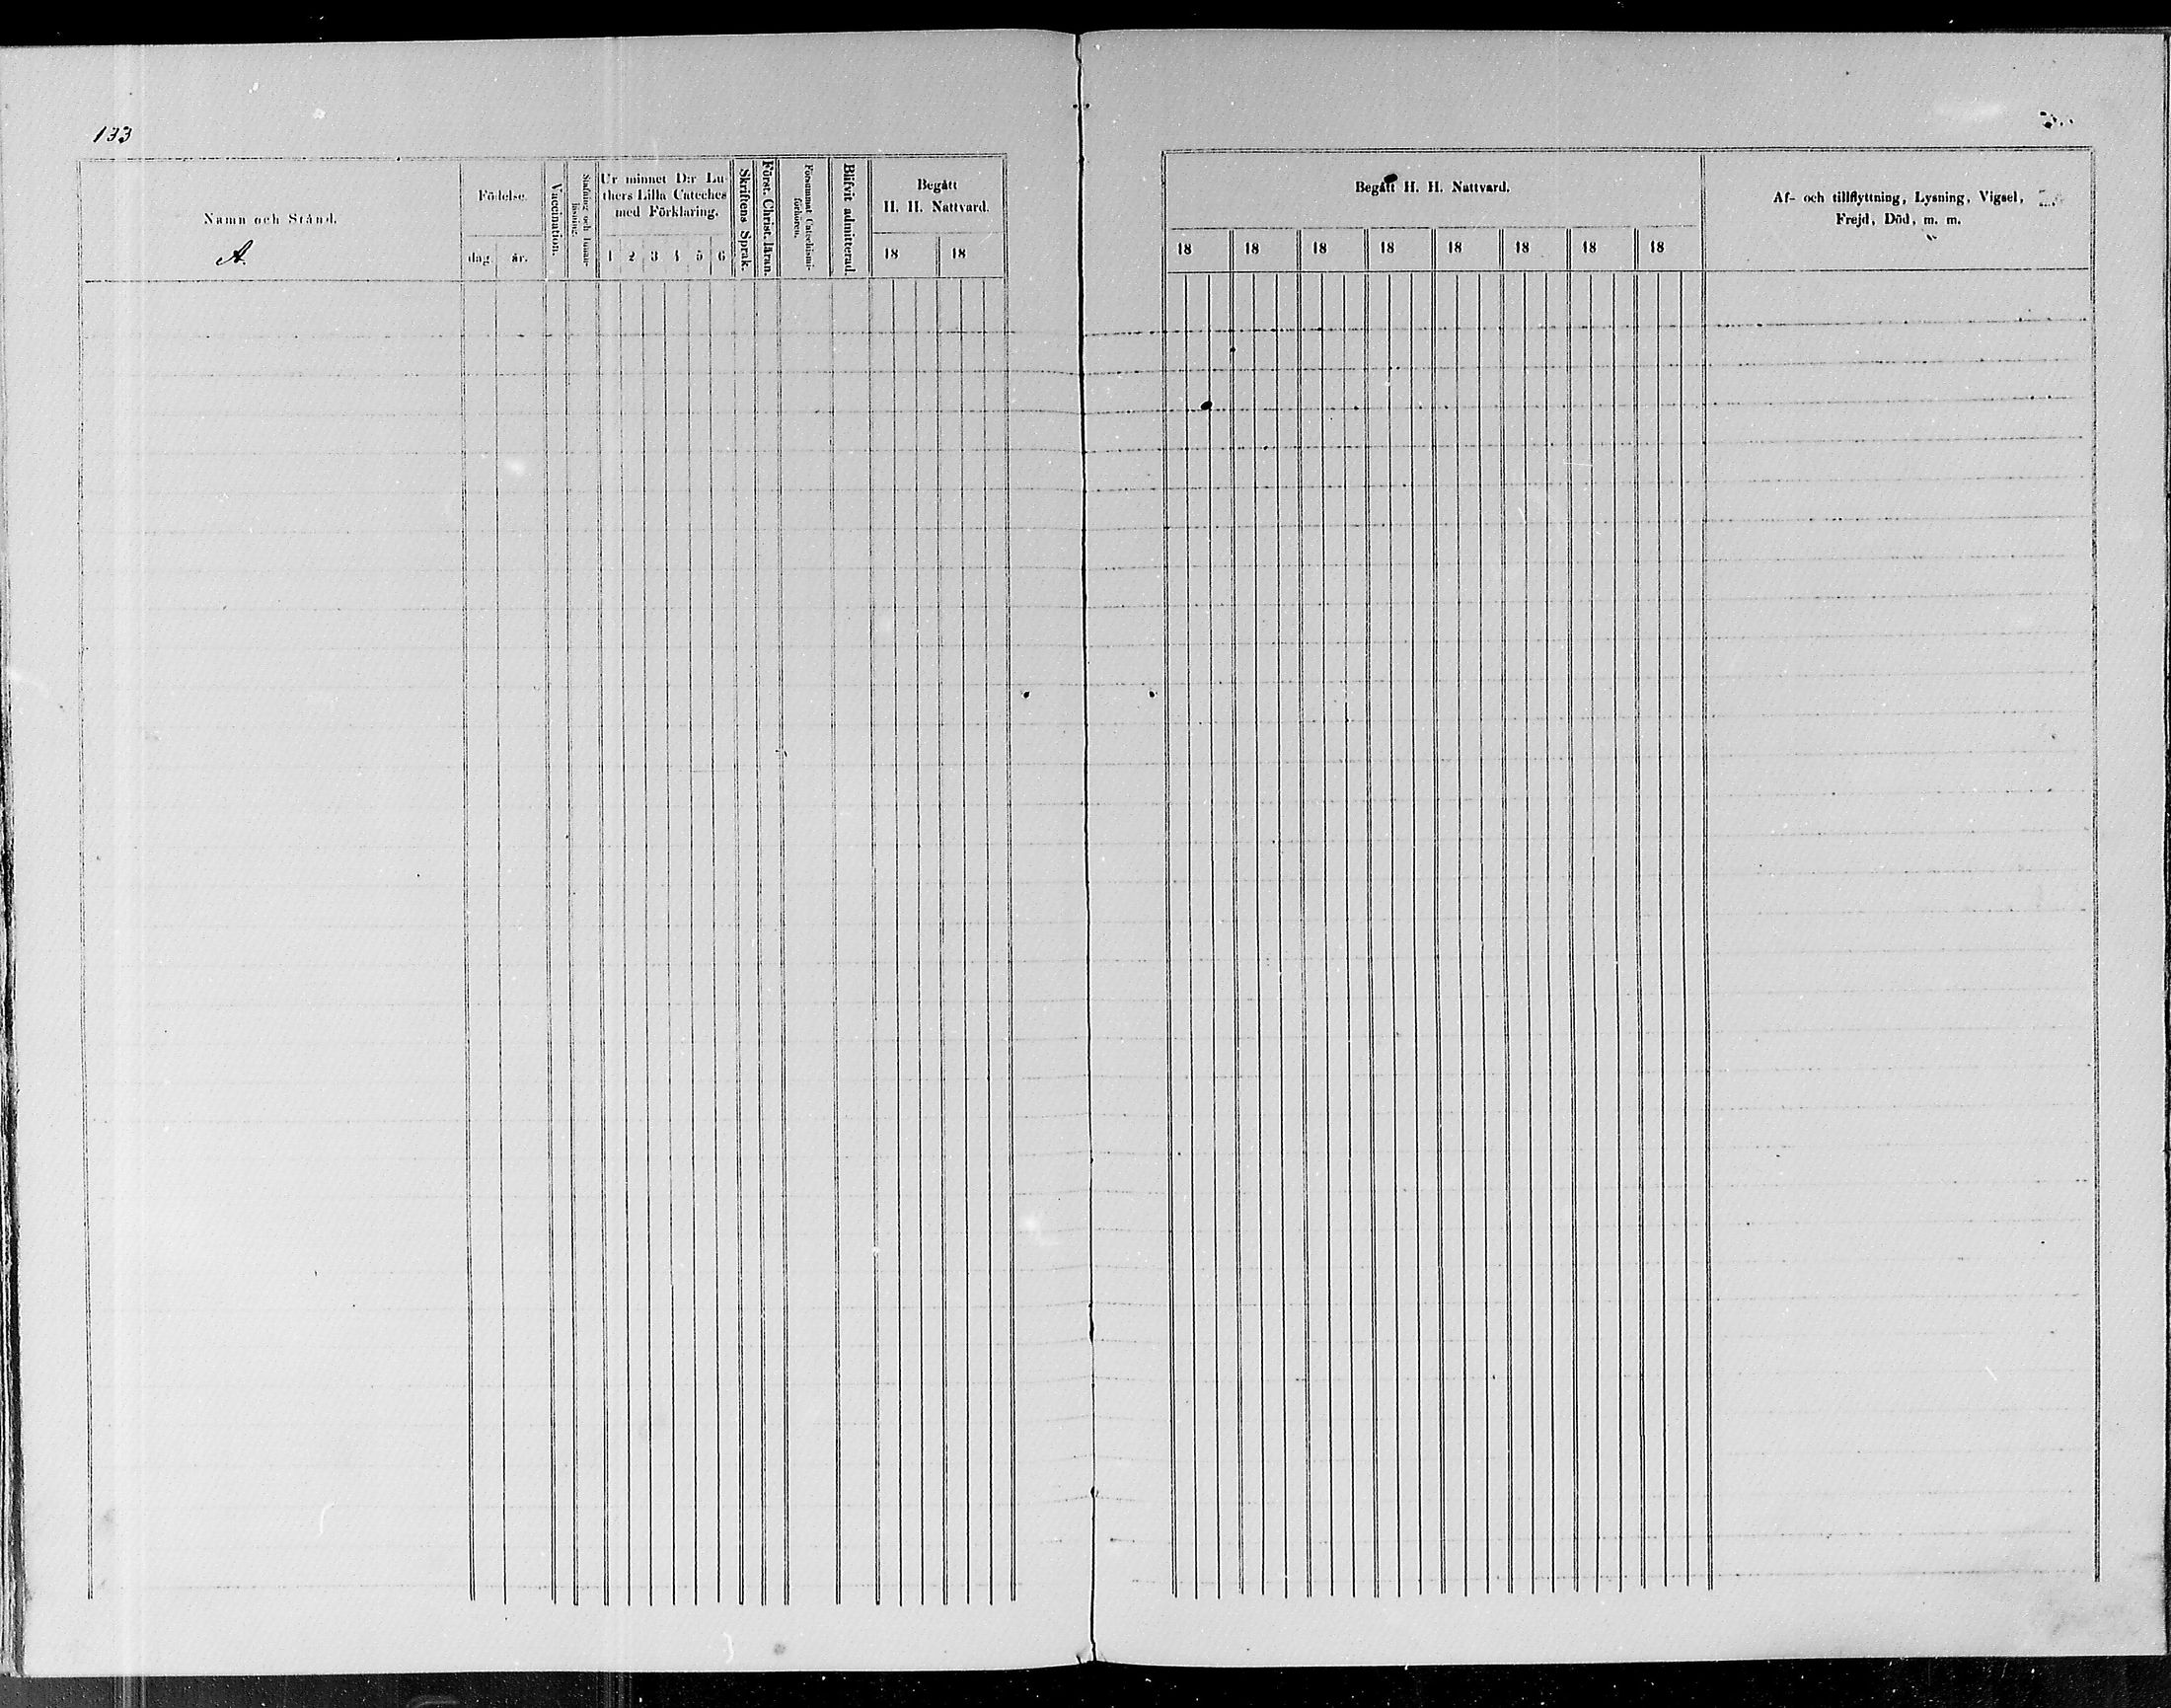 133
Namn och Stånd.
A.
Födelse.
dag
år.
Vaccination.
Stafning och innanläsning.
Ur minnet D:r Lu-
thers Lilla Cateches
med Förklaring.
1 2 3 4 5 6
Skriftens Språk.
Först. Christ. läran.
Försummat Catechismi-
förhören.
Blifvit admitterad.
Begått
H. H. Nattvard.
18 18
Begått H. H. Nattvard.
18 18 18 18 18 18 18 18
Af- och tillflyttning, Lysning, Vigsel,
Frejd, Död, m. m.